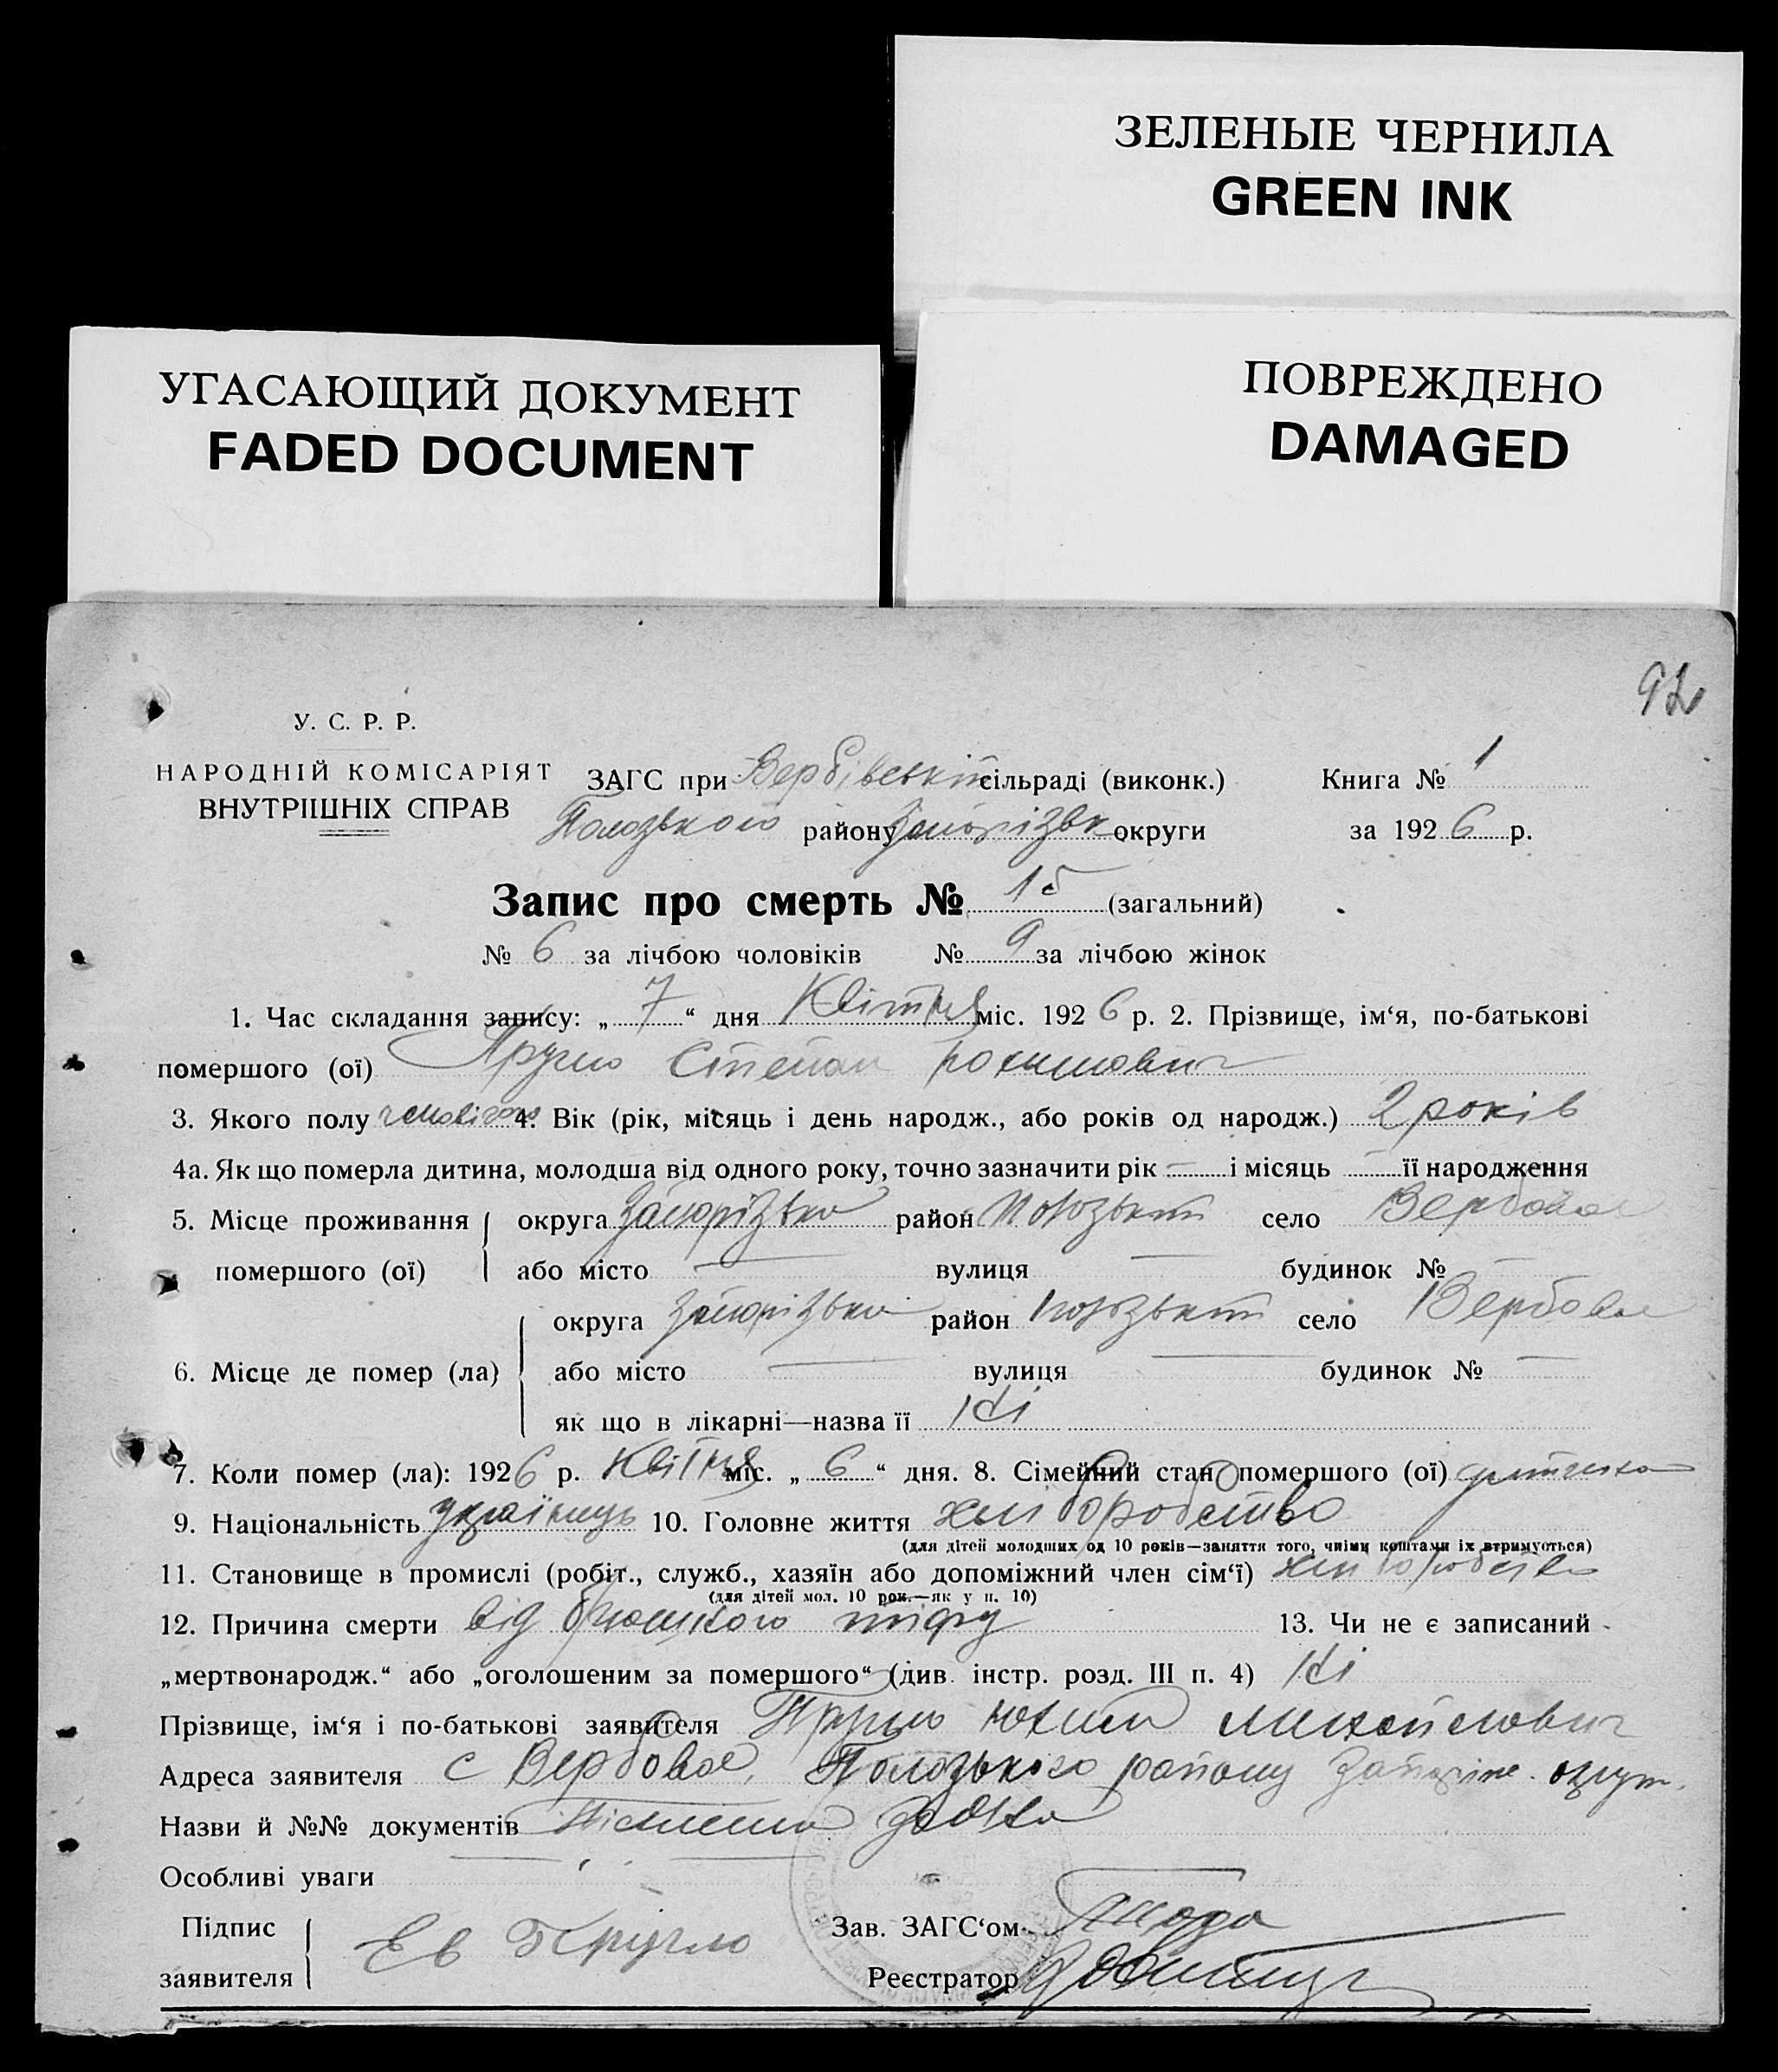 ЗЕЛЕНЫЕ ЧЕРНИЛА
GREEN INK
УГАСАЮЩИЙ ДОКУМЕНТ
FADED DOCUMENT
ПОВРЕЖДЕНО
DAMAGED
У. С. Р. Р.
НАРОДНІЙ КОМІСАРІЯТ
ВНУТРІШНІХ СПРАВ
ЗАГС при Вербівській сільраді (виконк.) Книга № 1
Пологзького району Запорізьк округи за 1926 р.
Запис про смерть № 15 (загальний)
№ 6 за лічбою чоловіків № 9 за лічбою жінок
1. Час складання запису: „7“ дня Квітня міс. 1926 р. 2. Прізвище, ім‘я, по-батькові
помершого (ої) Степан Юхимович
3. Якого полу 4. Вік (рік, місяць і день народж., або років од народж.) 2 років
4а. Як що померла дитина, молодша від одного року, точно зазначити рік — і місяць — її народження
5. Місце проживання помершого (ої) округа Запорізька район село Вербове
або місто — вулиця — будинок № —
6. Місце де помер (ла) округа Запорізька район село Вербове
або місто — вулиця — будинок № —
як що в лікарні—назва її Ні
7. Коли помер (ла): 1926 р. Квітня міс. „6“ дня. 8. Сімейний стан помершого (ої)
9. Національність українець 10. Головне життя хліборобство
(для дітей молодших од 10 років—заняття того, чиїми коштами їх втримується)
11. Становище в промислі (робіт., служб., хазяїн або допоміжний член сім‘ї)
(для дітей мол. 10 рок.—як у п. 10)
12. Причина смерти від брюшного тифу 13. Чи не є записаний
„мертвонародж.“ або „оголошеним за помершого“ (див. інстр. розд. III п. 4) Ні
Прізвище, ім‘я і по-батькові заявителя Юхим Михайлович
Адреса заявителя с Вербове, району
Назви й №№ документів
Особливі уваги
Підпис заявителя
Зав. ЗАГС‘ом
Реєстратор